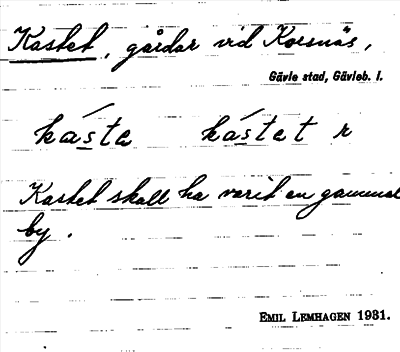 Kastet, gårdar vid Korsnäs,
Gävle stad, Gävleb. l.
káste kástet r
Kastet skall ha varit en gammal
by.
EMIL LEMHAGEN 1931.